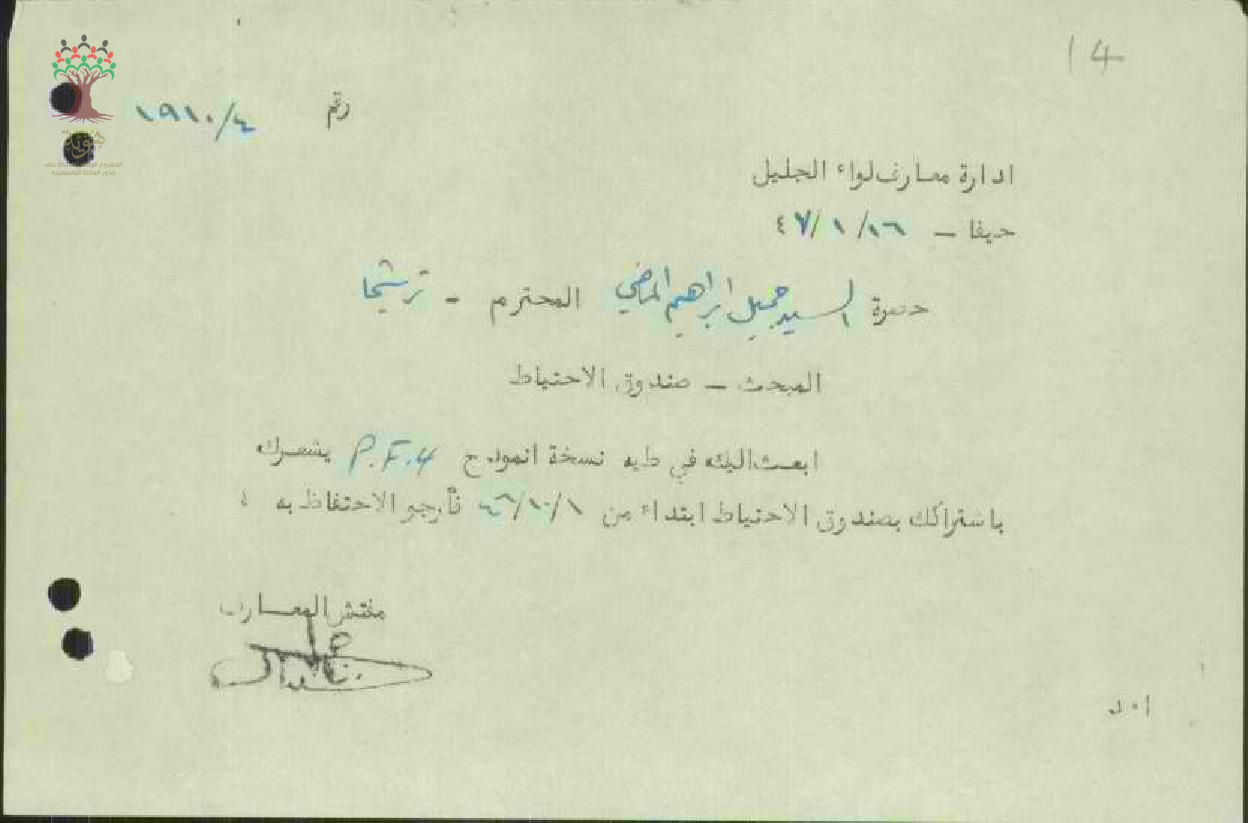 14
رقم ١٩١٠/٤
هوية
ادارة معارف لواء الجليل
حيفا – ٤٧/١/١٦
حضرة السيد جميل ابراهيم الماضي المحترم - ترشيحا
المبحث – صندوق الاحتياط
ابعث اليك في طيه نسخة انموذج P.F.4 يشعرك
باشتراكك بصندوق الاحتياط ابتداء من ٤٦/١٠/١ فأرجو الاحتفاظ به ،
مفتش المعارف